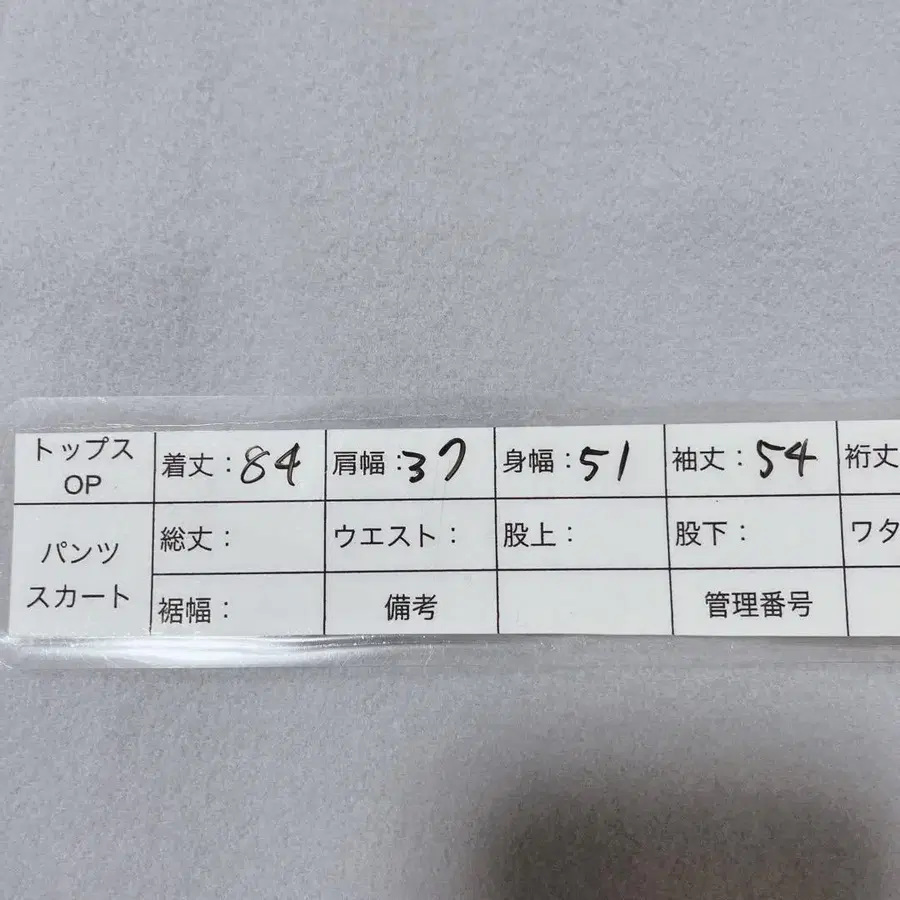 トップス OP 着丈：84 肩幅：37 身幅：51 袖丈：54 裄丈
パンツ スカート 総丈： ウエスト： 股上： 股下： ワタ
裾幅： 備考 管理番号